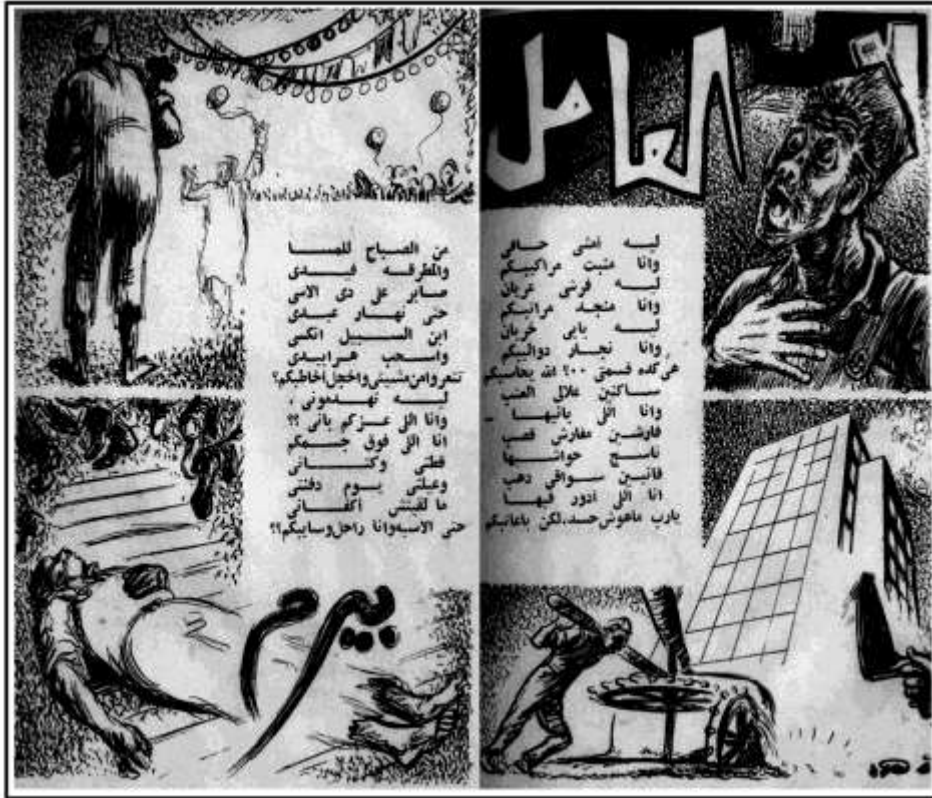 العامل
ليه امشى حافى
وانا منبت مراكيبكم
ليه فرشى عريان
وانا منجد مراتبكم
ليه بيتى خربان
وانا نجار دواليبكم
هى كده قسمتى ٠٠؟ الله يحاسبكم
ساكنين علالى العتب
وانا اللى بانيها _
فارشين مفارش قصب
ناسج حواشيها
قانيين سواقى دهب
انا اللى ادور فيها
يارب ماهوش حسد،لكن باعاتبكم
من الصباح للمسا
والمطرقه فيدى
صابر على دى الاسى
حتى نهار عيدى
ابن السبيل انكسى
واسحب هرابيدى
تتعروا من مشيتى واخجل اخاطبكم؟
ليه تهدمونى ،
وانا اللى عزكم بانى ؟؟
انا اللى فوق جسمكم
قطنى وكتانى
وعيلتى يوم دفنتى
ما لقيتش أكفانى
حتى الاسيه وانا راحل وسايبكم؟؟
بيرم